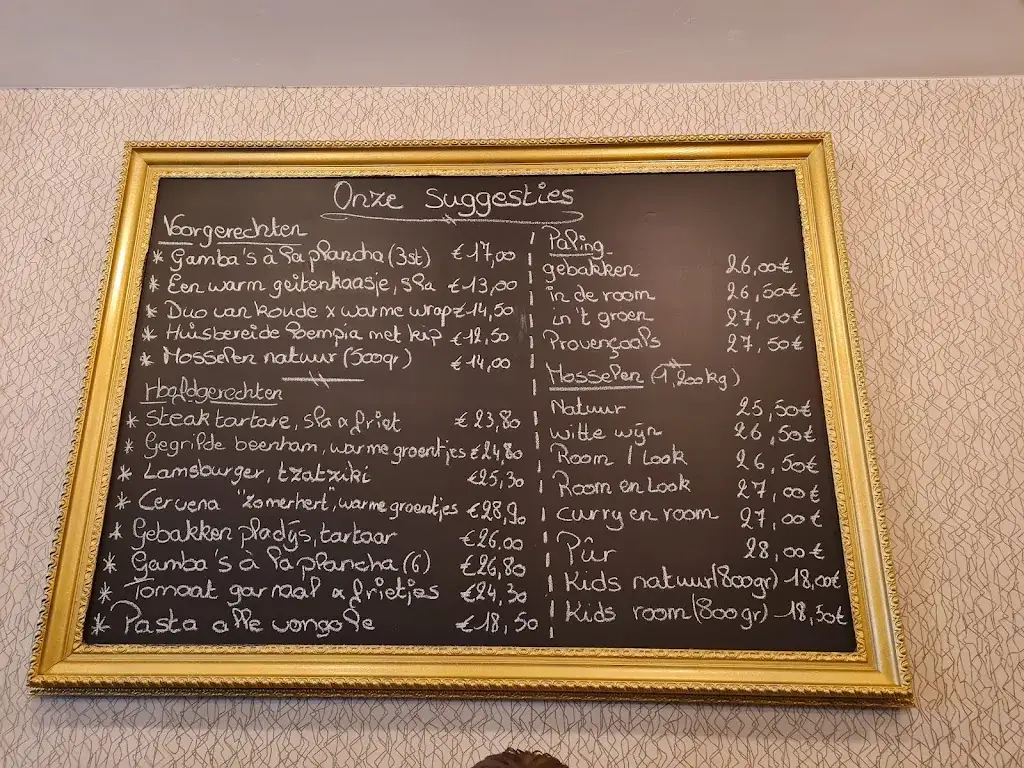 Onze Suggesties
Voorgerechten
* Gamba's à la plancha (3st) €17,00
* Een warm geitenkaasje, sla €13,00
* Duo van koude x warme wrap €14,50
* Huisbereide loempia met kip €12,50
* Mosselen natuur (500gr) €14,00
Hoofdgerechten
* Steak tartare, sla & friet €23,80
* Gegrilde beenham, warme groentjes €24,80
* Lamsburger, tzatziki €25,30
* Cervena "zomerhert", warme groentjes €28,90
* Gebakken pladijs, tartaar €26,00
* Gamba's à la plancha (6) €26,80
* Tomaat garnaal & frietjes €24,30
* Pasta alle vongole €18,50
Paling
gebakken 26,00€
in de room 26,50€
in 't groen 27,00€
Provençaals 27,50€
Mosselen (1,200kg)
Natuur 25,50€
witte wijn 26,50€
Room / Look 26,50€
Room en Look 27,00€
curry en room 27,00€
Pûr 28,00€
Kids natuur (800gr) - 18,00€
Kids room (800gr) - 18,50€